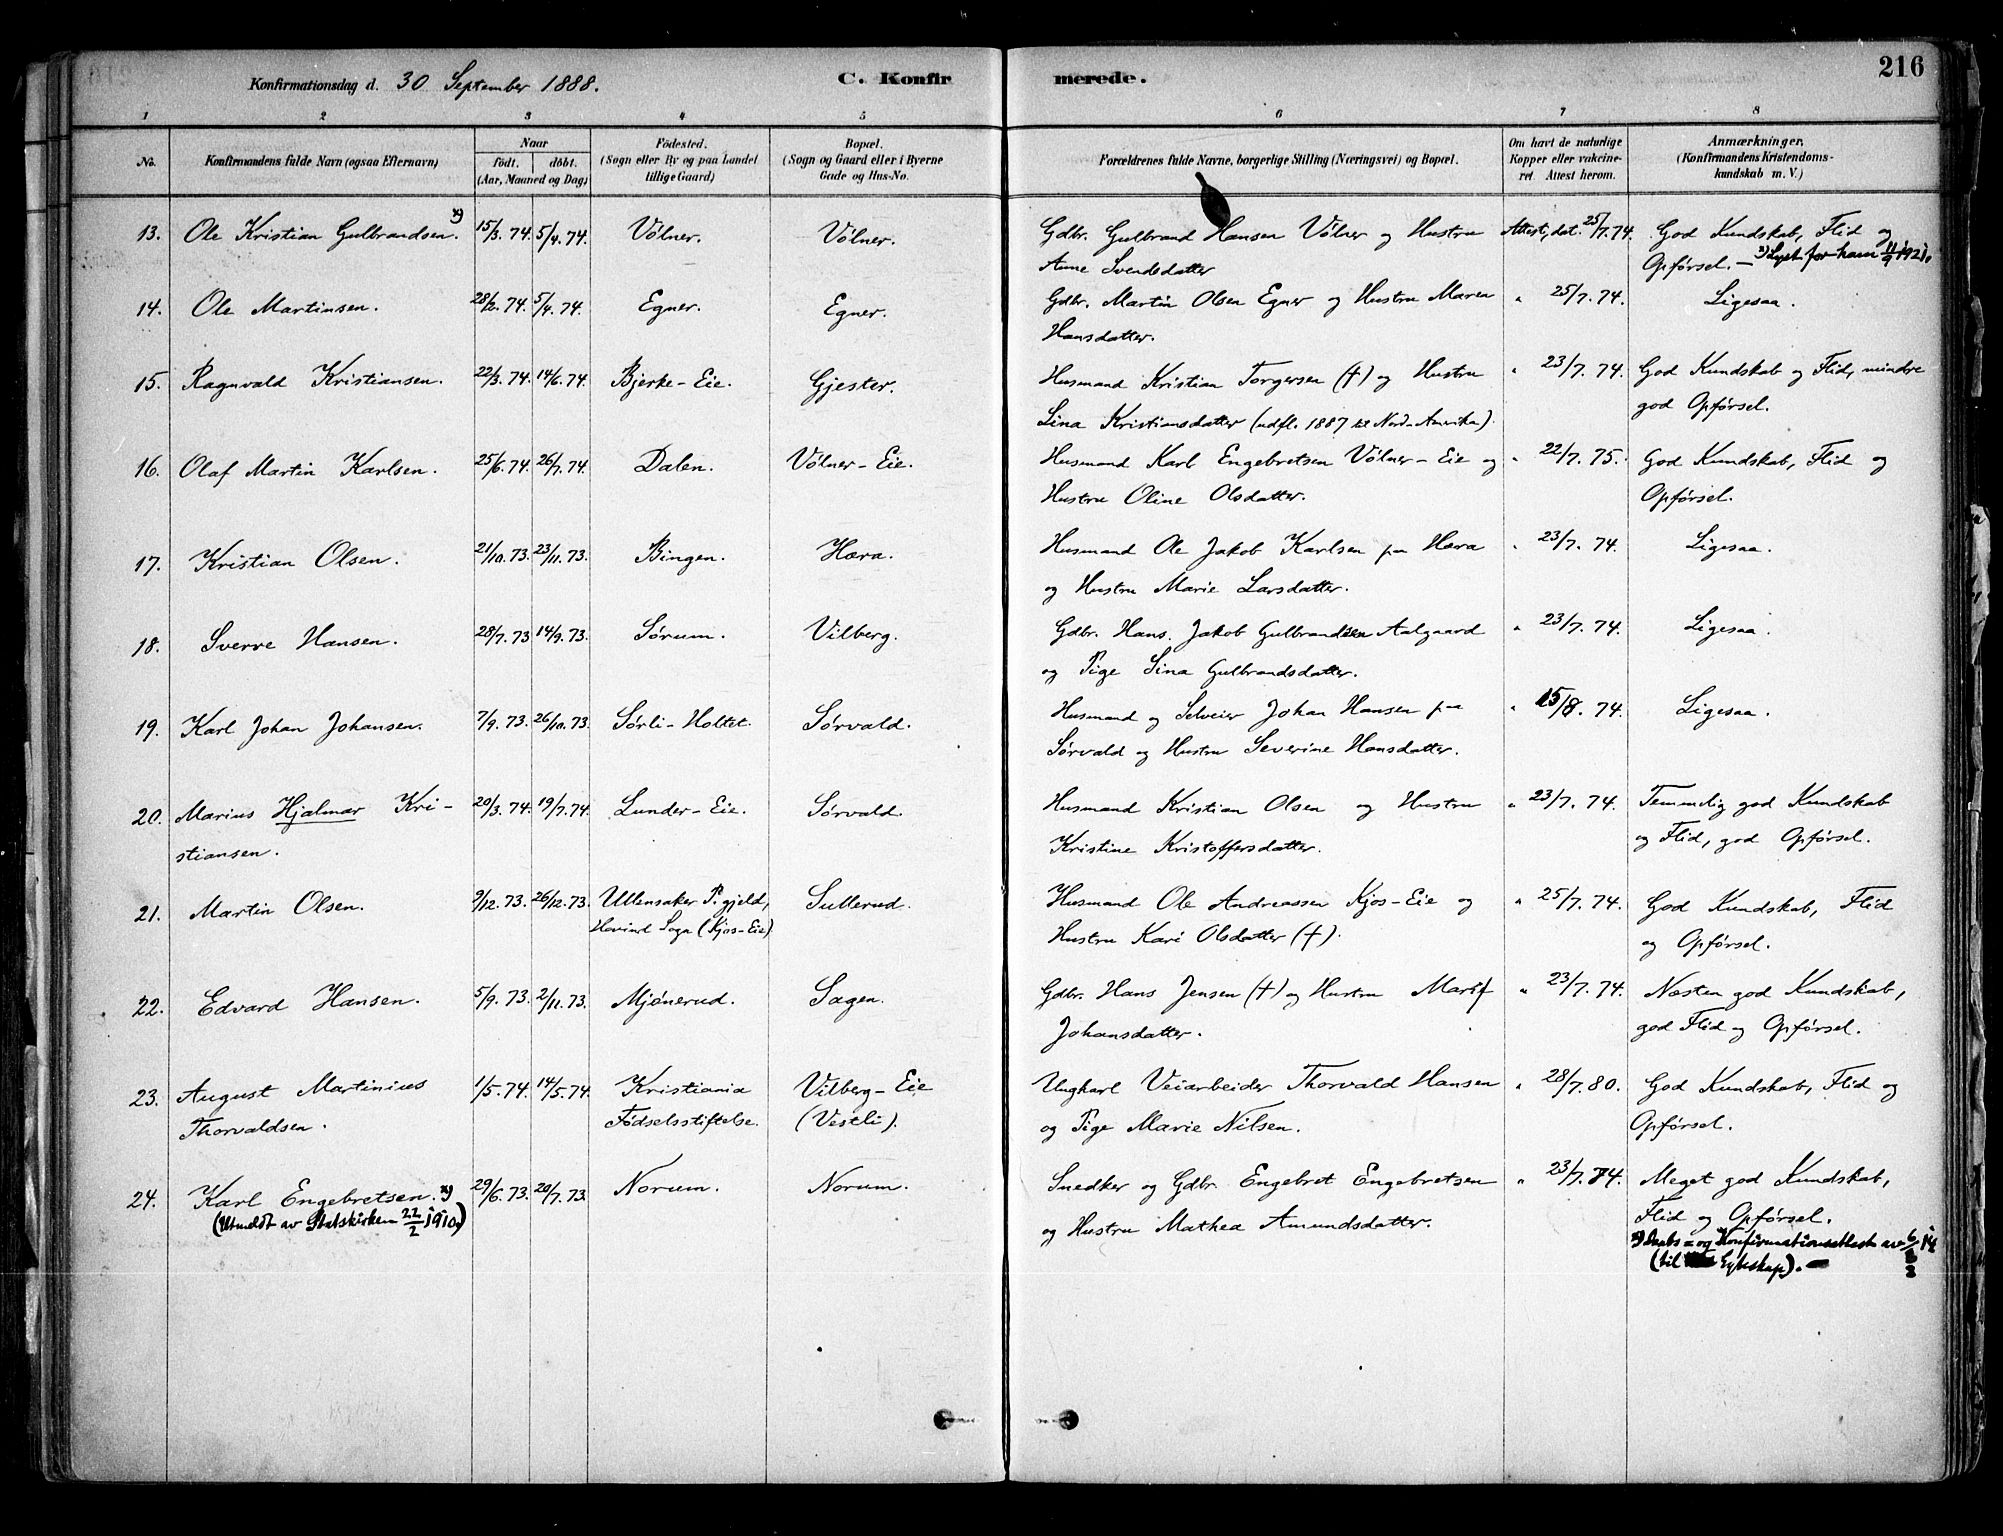 216
Konfirmationsdag d. 30 September 1888. C. Konfirmerede.
1 2 3 4 5 6 7 8
No. Konfirmandens fulde Navn (ogsaa Efternavn) Naar födt. döbt. (Aar, Maaned og Dag) Födested. (Sogn eller By og paa Landet tillige Gaard) Bopæl. (Sogn og Gaard eller i Byerne Gade og Hus-No. Forældrenes fulde Navne, borgerlige Stilling (Næringsvei) og Bopæl. Om havt de naturlige Kopper eller vakcineret. Attest herom. Anmærkninger. (Konfirmandens Kristendomskundskab m. V.)
13. Ole Kristian Gulbrandsen. x) 15/3. 74. 5/4. 74. Völner. Völner. Gdbr. Gulbrand Hansen Völner og Hustru Attest, dat. 25/7. 74. God Kundskab, Flid og
Anne Svendsdatter Opførsel. – x) Lyst for ham 11/9 1921.
14. Ole Martinsen. 28/2. 74. 5/4. 74. Egner. Egner. Gdbr. Martin Olsen Egner og Hustru Maren " 25/7. 74. Ligesaa.
Hansdatter.
15. Ragnvald Kristiansen. 22/3. 74. 14/6. 74. Bjerke-Eie. Gjester. Husmand Kristian Torgersen (†) og Hustru " 23/7. 74. God Kundskab og Flid, mindre
Lina Kristiansdatter (udfl. 1887 til Nord-Amerika). god Opførsel.
16. Olaf Martin Karlsen. 25/6. 74. 26/7. 74. Dalen. Völner-Eie. Husmand Karl Engebretsen Völner-Eie og " 22/7. 75. God Kundskab, Flid og
Hustru Oline Olsdatter. Opførsel.
17. Kristian Olsen. 21/10. 73. 23/11. 73. Bingen. Hæra. Husmand Ole Jakob Karlsen paa Hæra " 23/7. 74. Ligesaa.
og Hustru Marie Larsdatter.
18. Sverre Hansen. 28/7. 73 14/9. 73. Sørum. Vilberg. Gdbr. Hans Jakob Gulbrandsen Aalgaard " 23/7. 74. Ligesaa.
og Pige Lina Gulbrandsdatter.
19. Karl Johan Johansen. 7/9. 73. 26/10. 73. Sørli-Holtet. Sørvald. Husmand og Selveier Johan Hansen paa " 15/8. 74. Ligesaa.
Sørvald og Hustru Severine Hansdatter.
20. Marius Hjalmar Kri- 20/3. 74. 19/7. 74. Lunder-Eie. Sørvald. Husmand Kristian Olsen og Hustru " 23/7. 74. Temmelig god Kundskab
stiansen. Kristine Kristoffersdatter. og Flid, god Opførsel.
21. Martin Olsen. 9/12. 73. 26/12. 73. Ullensaker P.gjeld, Sullerud. Husmand Ole Andreassen Kjos-Eie og " 25/7. 74. God Kundskab, Flid
Hovind Sogn (Kjos-Eie) Hustru Kari Olsdatter (†). og Opførsel.
22. Edvard Hansen. 5/9. 73. 2/11. 73. Mjønerud. Sagen. Gdbr. Hans Jensen (†) og Hustru Mari " 23/7. 74. Næsten god Kundskab,
Johansdatter. god Flid og Opførsel.
23. August Martinius 1/5. 74. 14/5. 74. Kristiania Vilberg-Eie Ungkarl Veiarbeider Thorvald Hansen " 28/7. 80. God Kundskab, Flid og
Thorvaldsen. Fødselsstiftelse. (Vestli). og Pige Marie Nilsen. Opførsel.
24. Karl Engebretsen. x) 29/6. 73. 20/7. 73. Norum. Norum. Snedker og Gdbr. Engebret Engebretsen " 23/7. 74. Meget god Kundskab,
(Utmeldt av Statskirken 22/2 1910.) og Hustru Mathea Amundsdatter. Flid og Opførsel.
x) Daabs= og Konfirmationsattest av 6/3 14
(til Egteskap). –